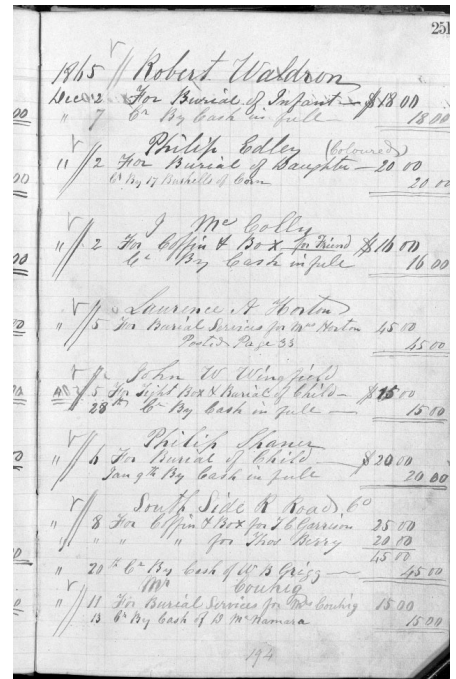 251
1865 Robert Waldron
Dec 2 For Burial of Infant — $18 00
" 7 Cr By Cash in full 18 00
Philip Edley (Coloured)
" 2 For Burial of Daughter — 20 00
Cr By 17 Bushells of Corn 20 00
J Mc Colly
" 2 For Coffin & Box for Friend $16 00
Cr By Cash in full 16 00
Laurence A Horton
" 5 For Burial Services for Mrs Horton 45 00
Posted Page 33 45 00
John W Wingfield
" 5 For Tight Box & Burial of Child — $15 00
28th Cr By Cash in full — 15 00
Philip Shaner
" 6 For Burial of Child — $20 00
Jan 9th By Cash in full 20 00
South Side R Road Co
" 8 For Coffin & Box for J C Garrison 25 00
" " " for Thos Berry 20 00
45 00
" 20th Cr By Cash of W B Grigg — 45 00
Mr Couhig
" 11 For Burial Services for Mrs Couhig 15 00
13 Cr By Cash of B McNamara 15 00
194